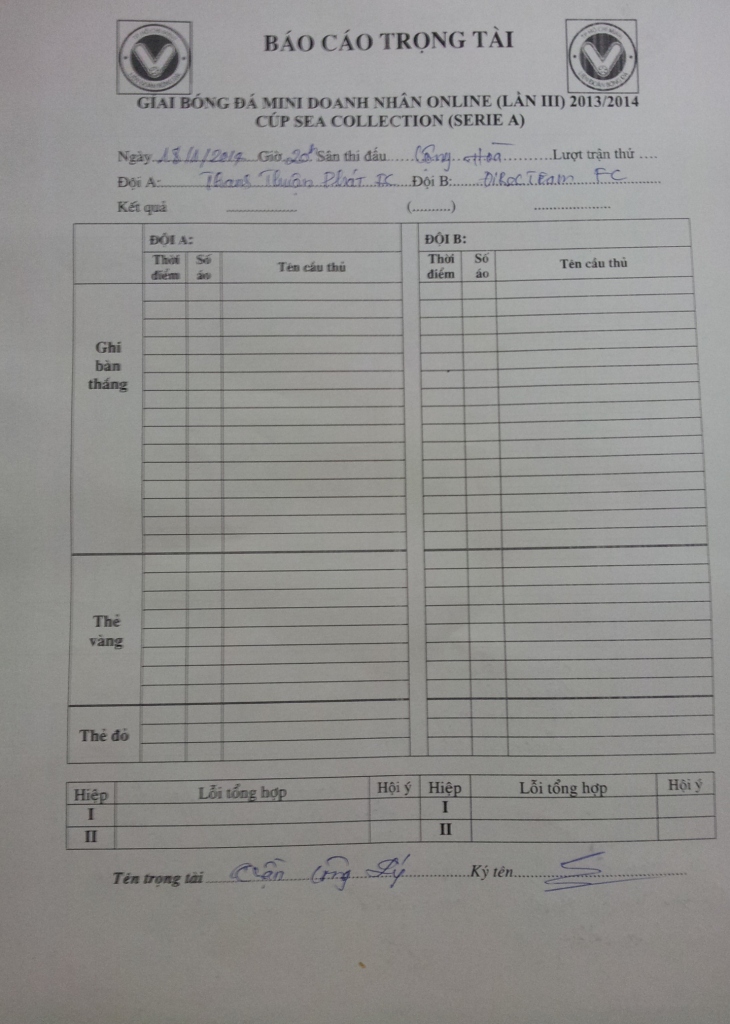 BÁO CÁO TRỌNG TÀI
GIẢI BÓNG ĐÁ MINI DOANH NHÂN ONLINE (LẦN III) 2013/2014
CÚP SEA COLLECTION (SERIE A)
Ngày 18/1/2014 Giờ 20h Sân thi đấu......Cộng Hoà..........Lượt trận thứ ....
Đội A: Thang Thuận Phát FC Đội B: FC
Kết quả .................. (..........) ...................
ĐỘI A: ĐỘI B:
Thời điểm Số áo Tên cầu thủ Thời điểm Số áo Tên cầu thủ
Ghi bàn thắng
Thẻ vàng
Thẻ đỏ
Hiệp Lỗi tổng hợp Hội ý Hiệp Lỗi tổng hợp Hội ý
I I
II II
Tên trọng tài Trần Công Lý Ký tên